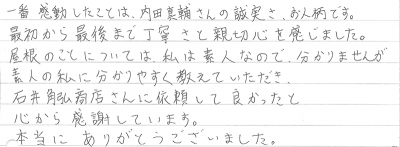 一番 感動したことは、内田真輔さんの誠実さ、お人柄です。
最初から最後まで丁寧さと親切心を感じました。
屋根のことについては、私は素人なので、分かりませんが
素人の私に分かりやすく教えていただき、
石井角弘商店さんに依頼して良かったと
心から感謝しています。
本当に ありがとうございました。